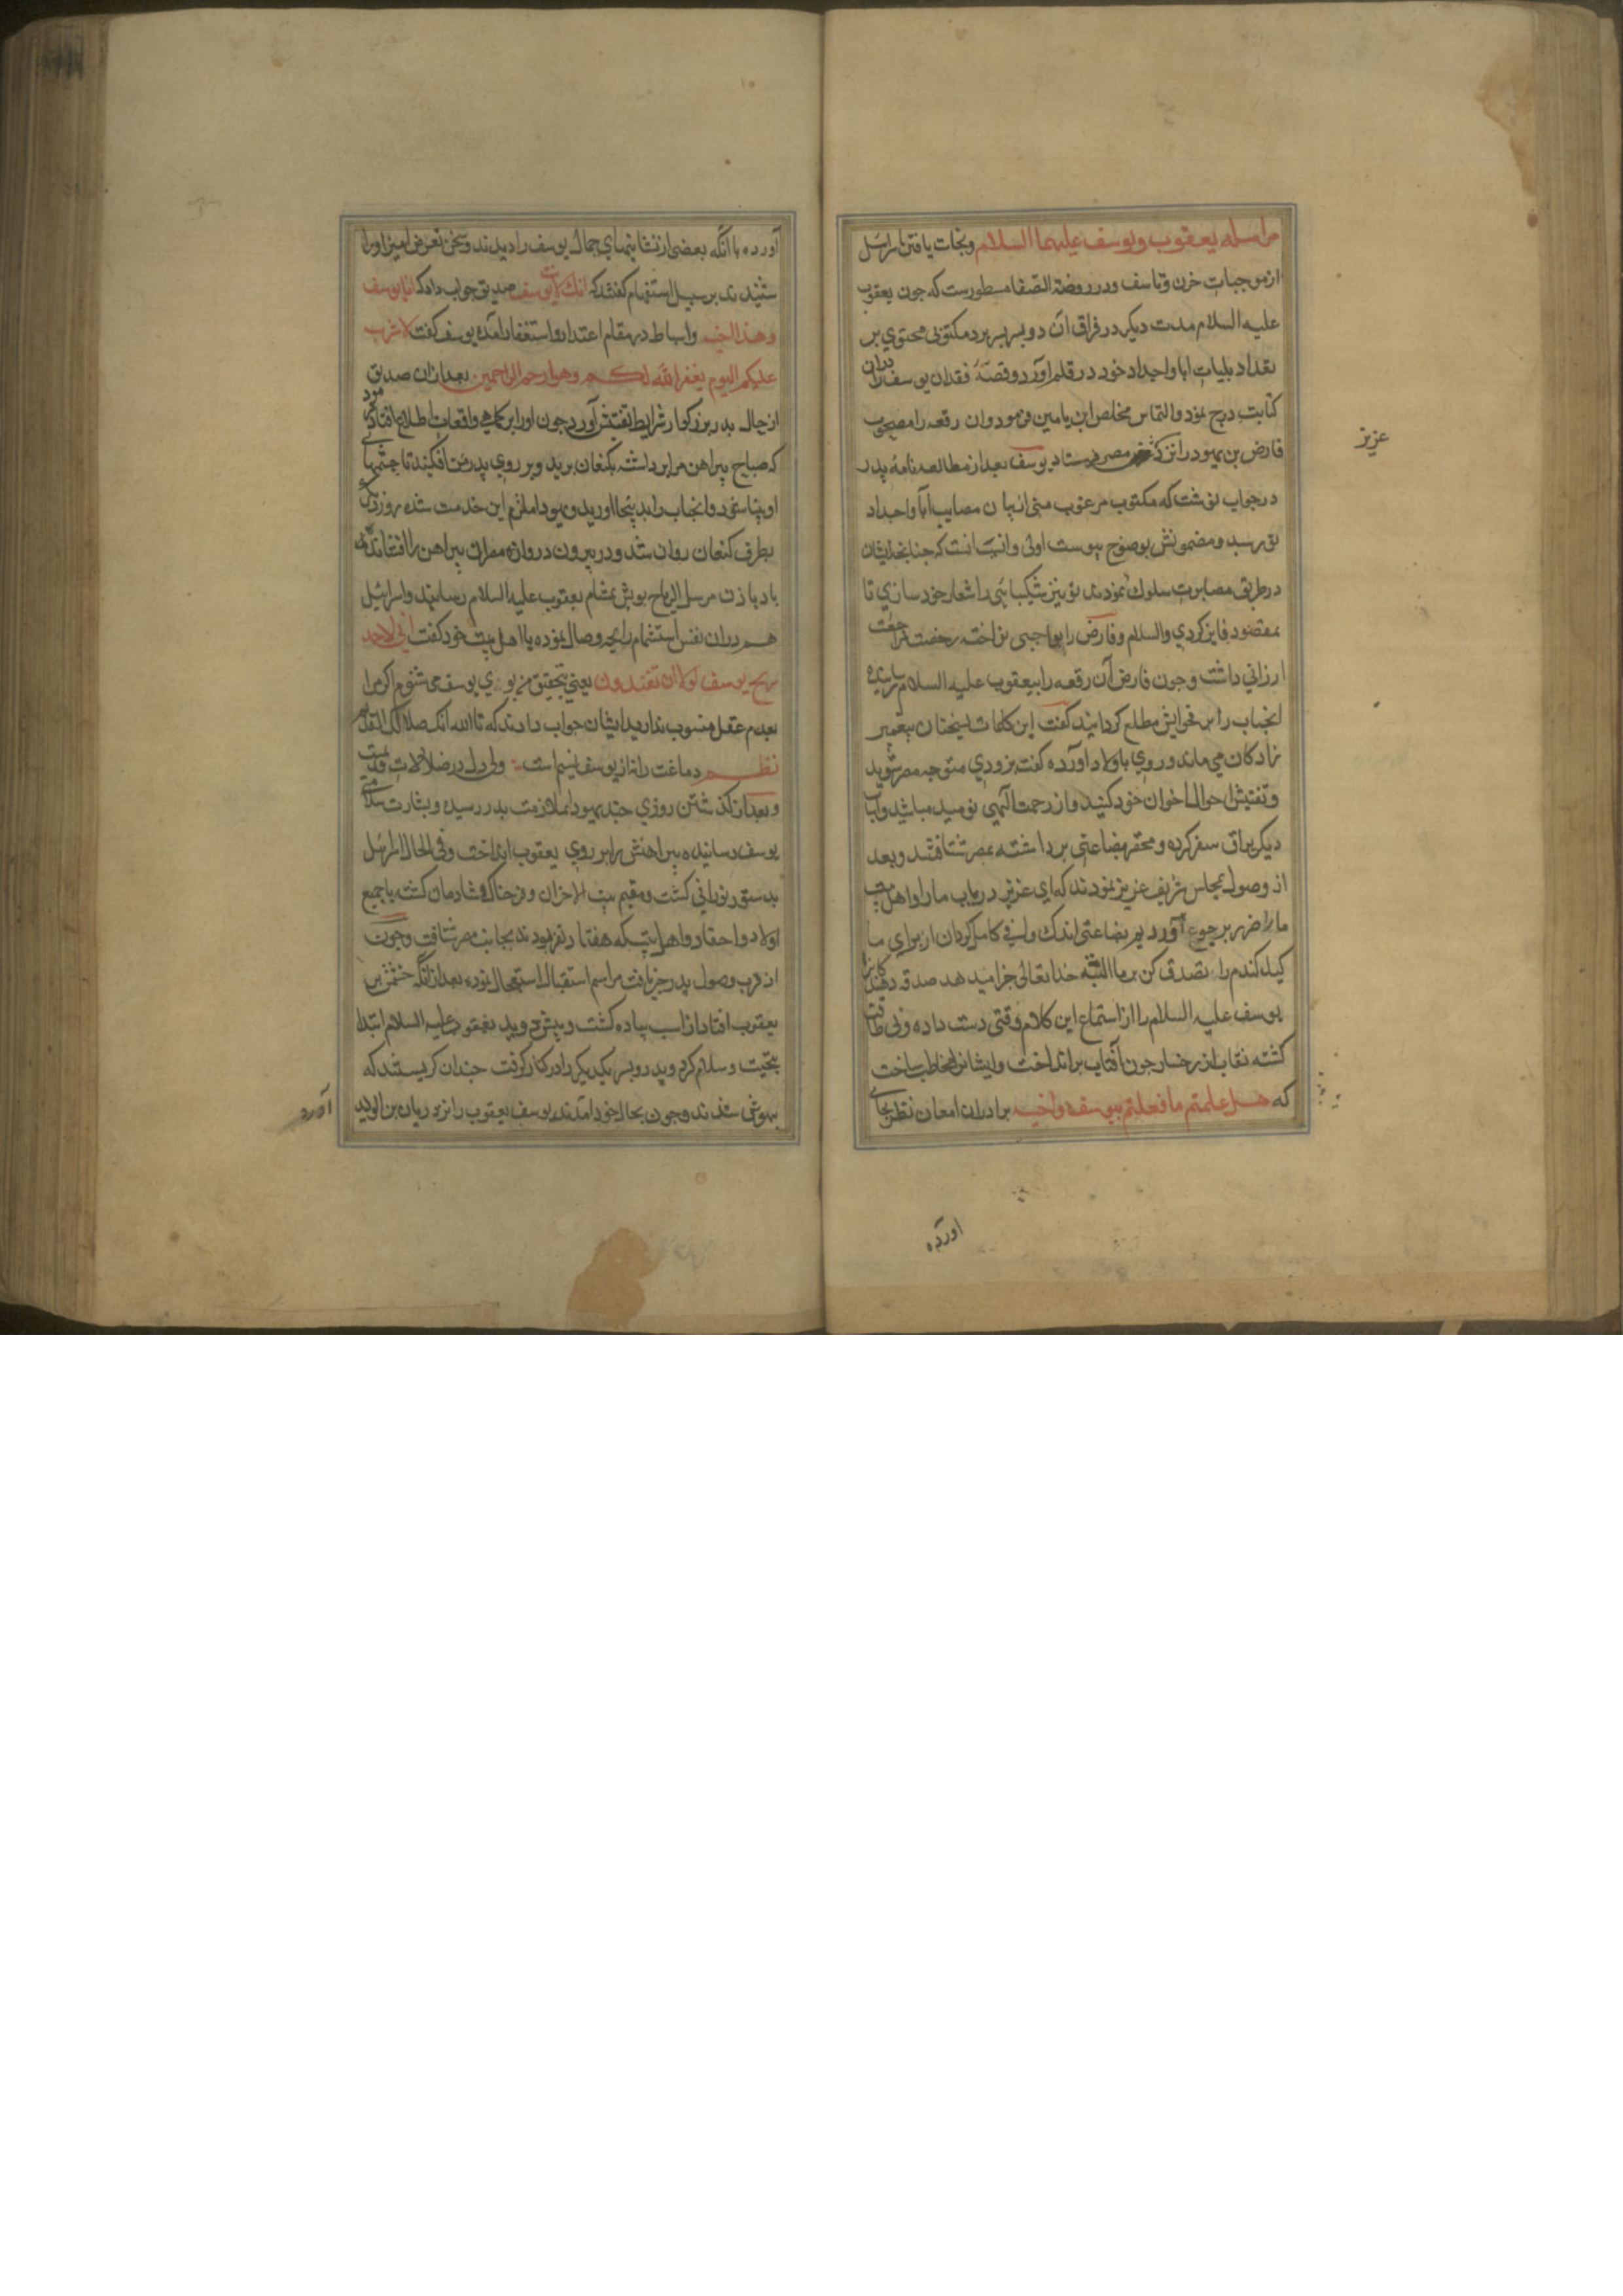 مراسله یعقوب ویوسف علیهما السلام ونجات یافتن اسرائیل
ازموجبات حزن وتاسف ودر روضة الصفا مسطورست که جون یعقوب
علیه السلام مدت دیکر در فراق آن دو پسر بسر برد مکتوبی محتوی بر
تعداد بلیات ابا واجداد خود در قلم آورد وقصّهٔ فقدان یوسف را دران
کتابت درج نمود والتماس مخلص ابن یامین فرمود وان رقعه را مصحوب
فارض بن یهودا نزد مصر فرستاد یوسف بعد از مطالعه نامه پدر
عزیز
در جواب نوشت که مکتوب مرغوب مبنی از بیان مصایب ابا واجداد
تو رسید ومضمونش بوضوح پیوست اولی وانسب انست که جنانجه ایشان
در طریق مصابرت سلوک نمودند تو نیز شکیبائی را شعار خود سازی تا
بمقصود فایز کردی والسلام وفارض را نواخته رخصت مراجعت
ارزانی داشت وجون فارض آن رقعه را بیعقوب علیه السلام رسانیده
انجناب را بر فحوایش مطلع کردانید کفت این کلمات بسخنان پیغمبر
زادکان می ماند وروی باولاد آورده کفت بزودی متوجه مصر شوید
وتفتیش احوال اخوان خود کنید واز رحمت الهی نومید مباشید واسباط
دیکر یراق سفر کرده ومحقر بضاعتی برداشته بمصر شتافتند وبعد
از وصول بمجلس شریف عزیز نمودند که ای عزیز دریاب ما را واهل بیت
ما را ضر بر جوع آوردیم بضاعتی اندک وافی کامل کردان از برای ما
کیل کندم را وتصدق کن بر ما البته خدا تعالی جزا میدهد صدقه دهندکانرا
یوسف علیه السلام را از استماع این کلام رقتی دست داده وبی طاقت
کشته نقاب از رخسار جون آفتاب برانداخت وایشانرا مخاطب ساخت
که هل علمتم ما فعلتم بیوسف واخیه برادران امعان نظر بجای
اورده
آورده با آنکه بعضی از نشانیهای جمال یوسف را دیدند وسخن تعرض امیز اورا
شنیدند بر سبیل استفهام کفتند که انک لانت یوسف صدیق جواب داد که انا یوسف
وهذا اخی واسباط در مقام اعتذار واستغفار آمده یوسف کفت لا تثریب
علیکم الیوم یغفر الله لکم وهو ارحم الراحمین بعد ازان صدیق
از حال پدر بزرکوار شرایط تفتیش آورد جون اورا بر کماهی واقعات اطلاع افتاد فرمود
که صباح پیراهن مرا برداشته بکنعان برید وبر روی پدر من افکنید تا جشمهای
او بینا شود وانجناب را بدینجا اورید ویهودا ملتزم این خدمت شده روز دیکر
بطرف کنعان روان شد ودر بیرون دروازه مصر ان پیراهن را افشاند
باد باذن مرسل الریاح بویش بمشام یعقوب علیه السلام رسانید واسرائیل
هم دران نفس استشمام رایحه وصال نموده با اهل بیت خود کفت انی لاجد
ریح یوسف لولا ان تفندون یعنی بتحقیق من بوی یوسف می شنوم اکر مرا
بعدم عقل منسوب ندارید ایشان جواب دادند که تالله انک ضلالک القدیم
نظم دماغت را نه از یوسف نسیم است ولی دل در ضلالات قدیمست
وبعد از کذشتن روزی جند یهودا بملازمت پدر رسید وبشارت سلامتی
یوسف رسانیده پیراهنش را بر روی یعقوب انداخت وفی الحال اسرائیل
بدستور نورانی کشت ومقیم بیت الاحزان فرحناک وشادمان کشته با جمیع
اولاد واحفاد واهل بیت که هفتاد نفر بودند بجانب مصر شتافت وجون
از قرب وصول پدر خبر یافت مراسم استقبال استعجال نموده بعد ازانکه جشمش بر
یعقوب افتاد از اسب پیاده کشت وپیش دوید یعقوب علیه السلام ابتدا
بتحیت وسلام کرد وپدر وپسر یکدیکر را در کنار کرفت جندان کریستند که
بیهوش شدند وجون بحال خود امدند یوسف یعقوب را نزد ریان بن الولید
آورد